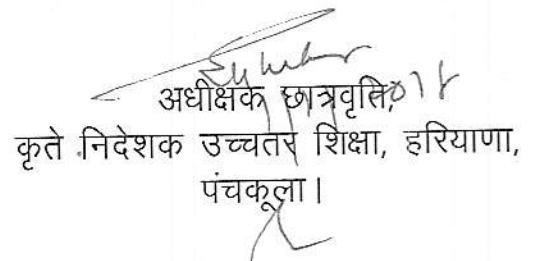 अधीक्षक छात्रवृति,
कृते निदेशक उच्चतर शिक्षा, हरियाणा,
पंचकूला।